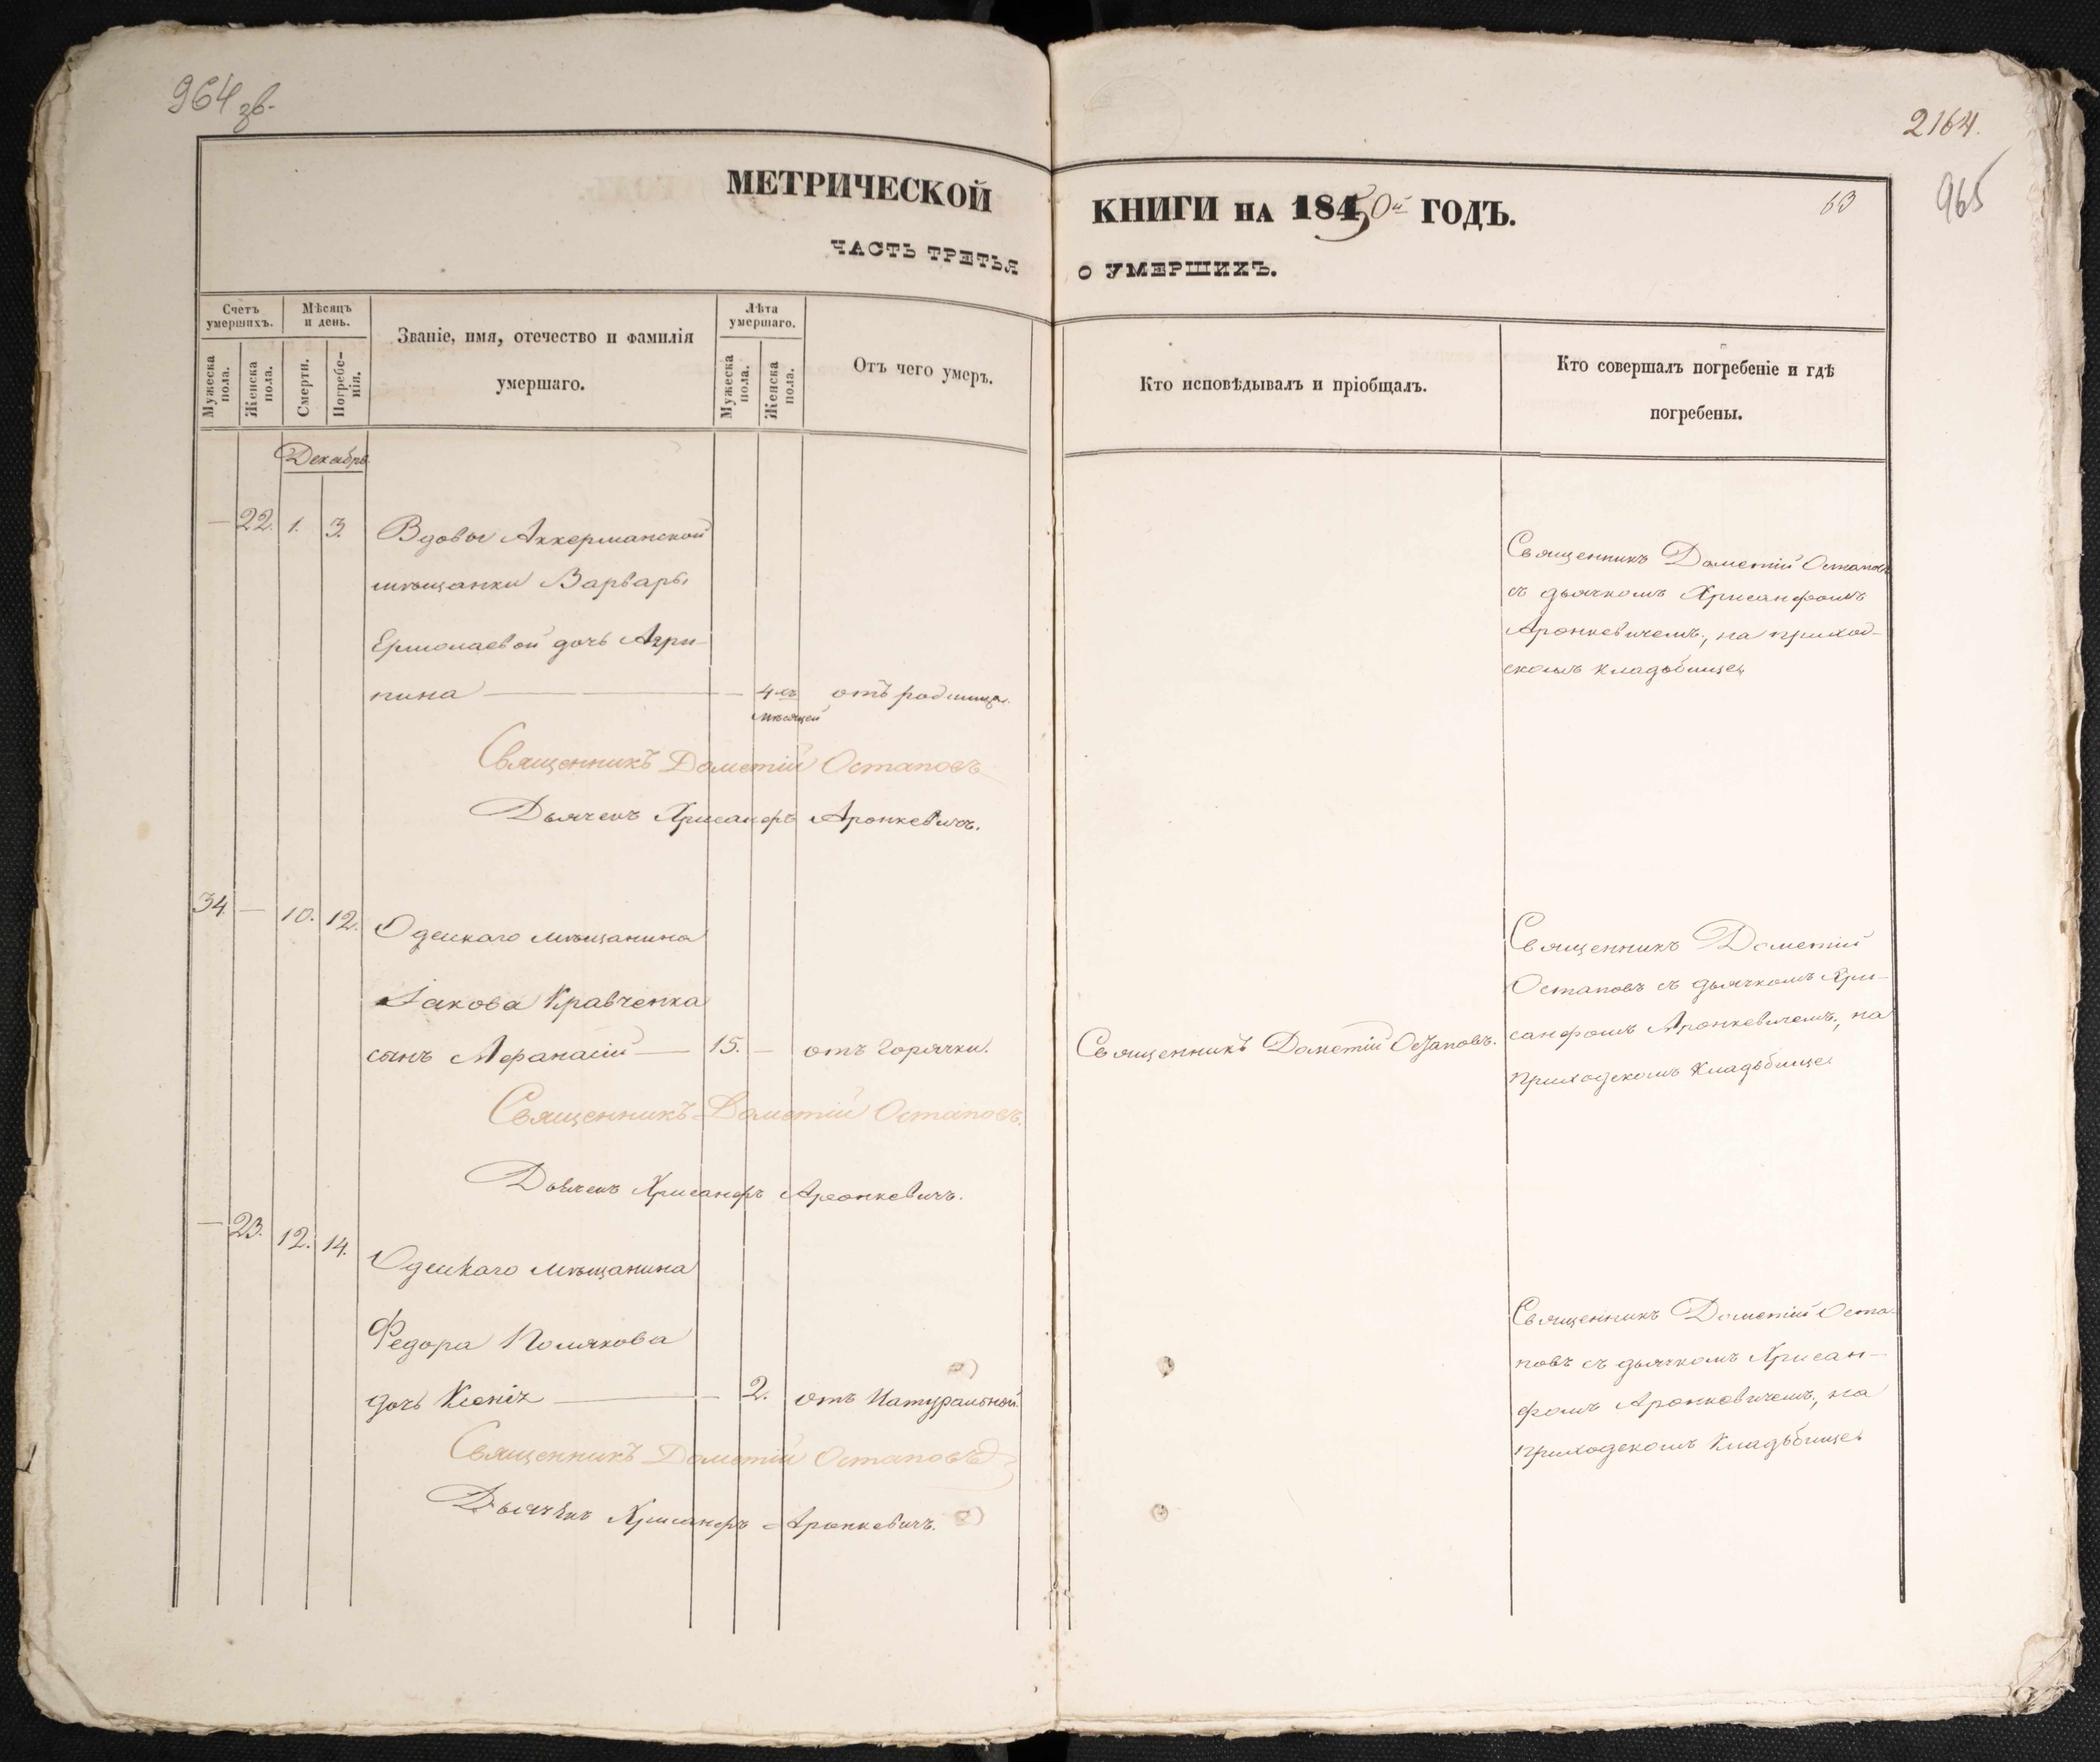 964 зв.
2164.
965
63
МЕТРИЧЕСКОЙ КНИГИ НА 1850й ГОДЪ.
ЧАСТЬ ТРЕТЬЯ О УМЕРШИХЪ.
Счетъ умершихъ.
Мужеска пола.
Женска пола.
Мѣсяцъ и день.
Смерти.
Погребенія.
Званіе, имя, отечество и фамилія
умершаго.
Лѣта умершаго.
Мужеска пола.
Женска пола.
Отъ чего умеръ.
Кто исповѣдывалъ и пріобщалъ.
Кто совершалъ погребеніе и гдѣ
погребены.
Декабрь
— 22. 1. 3. Вдовы Аккерманской
мѣщанки Варвары
Ермолаевой дочь Агри-
пина — 4хъ мѣсяцей отъ родимца.
Священникъ Дометій Остаповъ
съ дьячкомъ Хрисанфомъ
Аронкевичемъ, на приход-
скомъ кладбище
Священникъ Дометій Остаповъ
Дьячекъ Хрисанфъ Аронкевичъ.
34. — 10. 12. Одескаго мѣщанина
Іакова Кравченка
сынъ Афанасій — 15. — отъ горячки.
Священникъ Дометій Остаповъ.
Священникъ Дометій
Остаповъ съ дьячкомъ Хри-
санфомъ Аронкевичемъ, на
приходскомъ кладбище
Священникъ Дометій Остаповъ.
Дьячекъ Хрисанфъ Аронкевичъ.
— 23. 12. 14. Одескаго мѣщанина
Федора Полякова
дочь Ксенія — 2. отъ Натуральной
Священникъ Дометій Оста-
повъ съ дьячкомъ Хрисан-
фомъ Аронкевичемъ, на
приходскомъ кладбище
Священникъ Дометій Остаповъ
Дьячекъ Хрисанфъ Аронкевичъ.